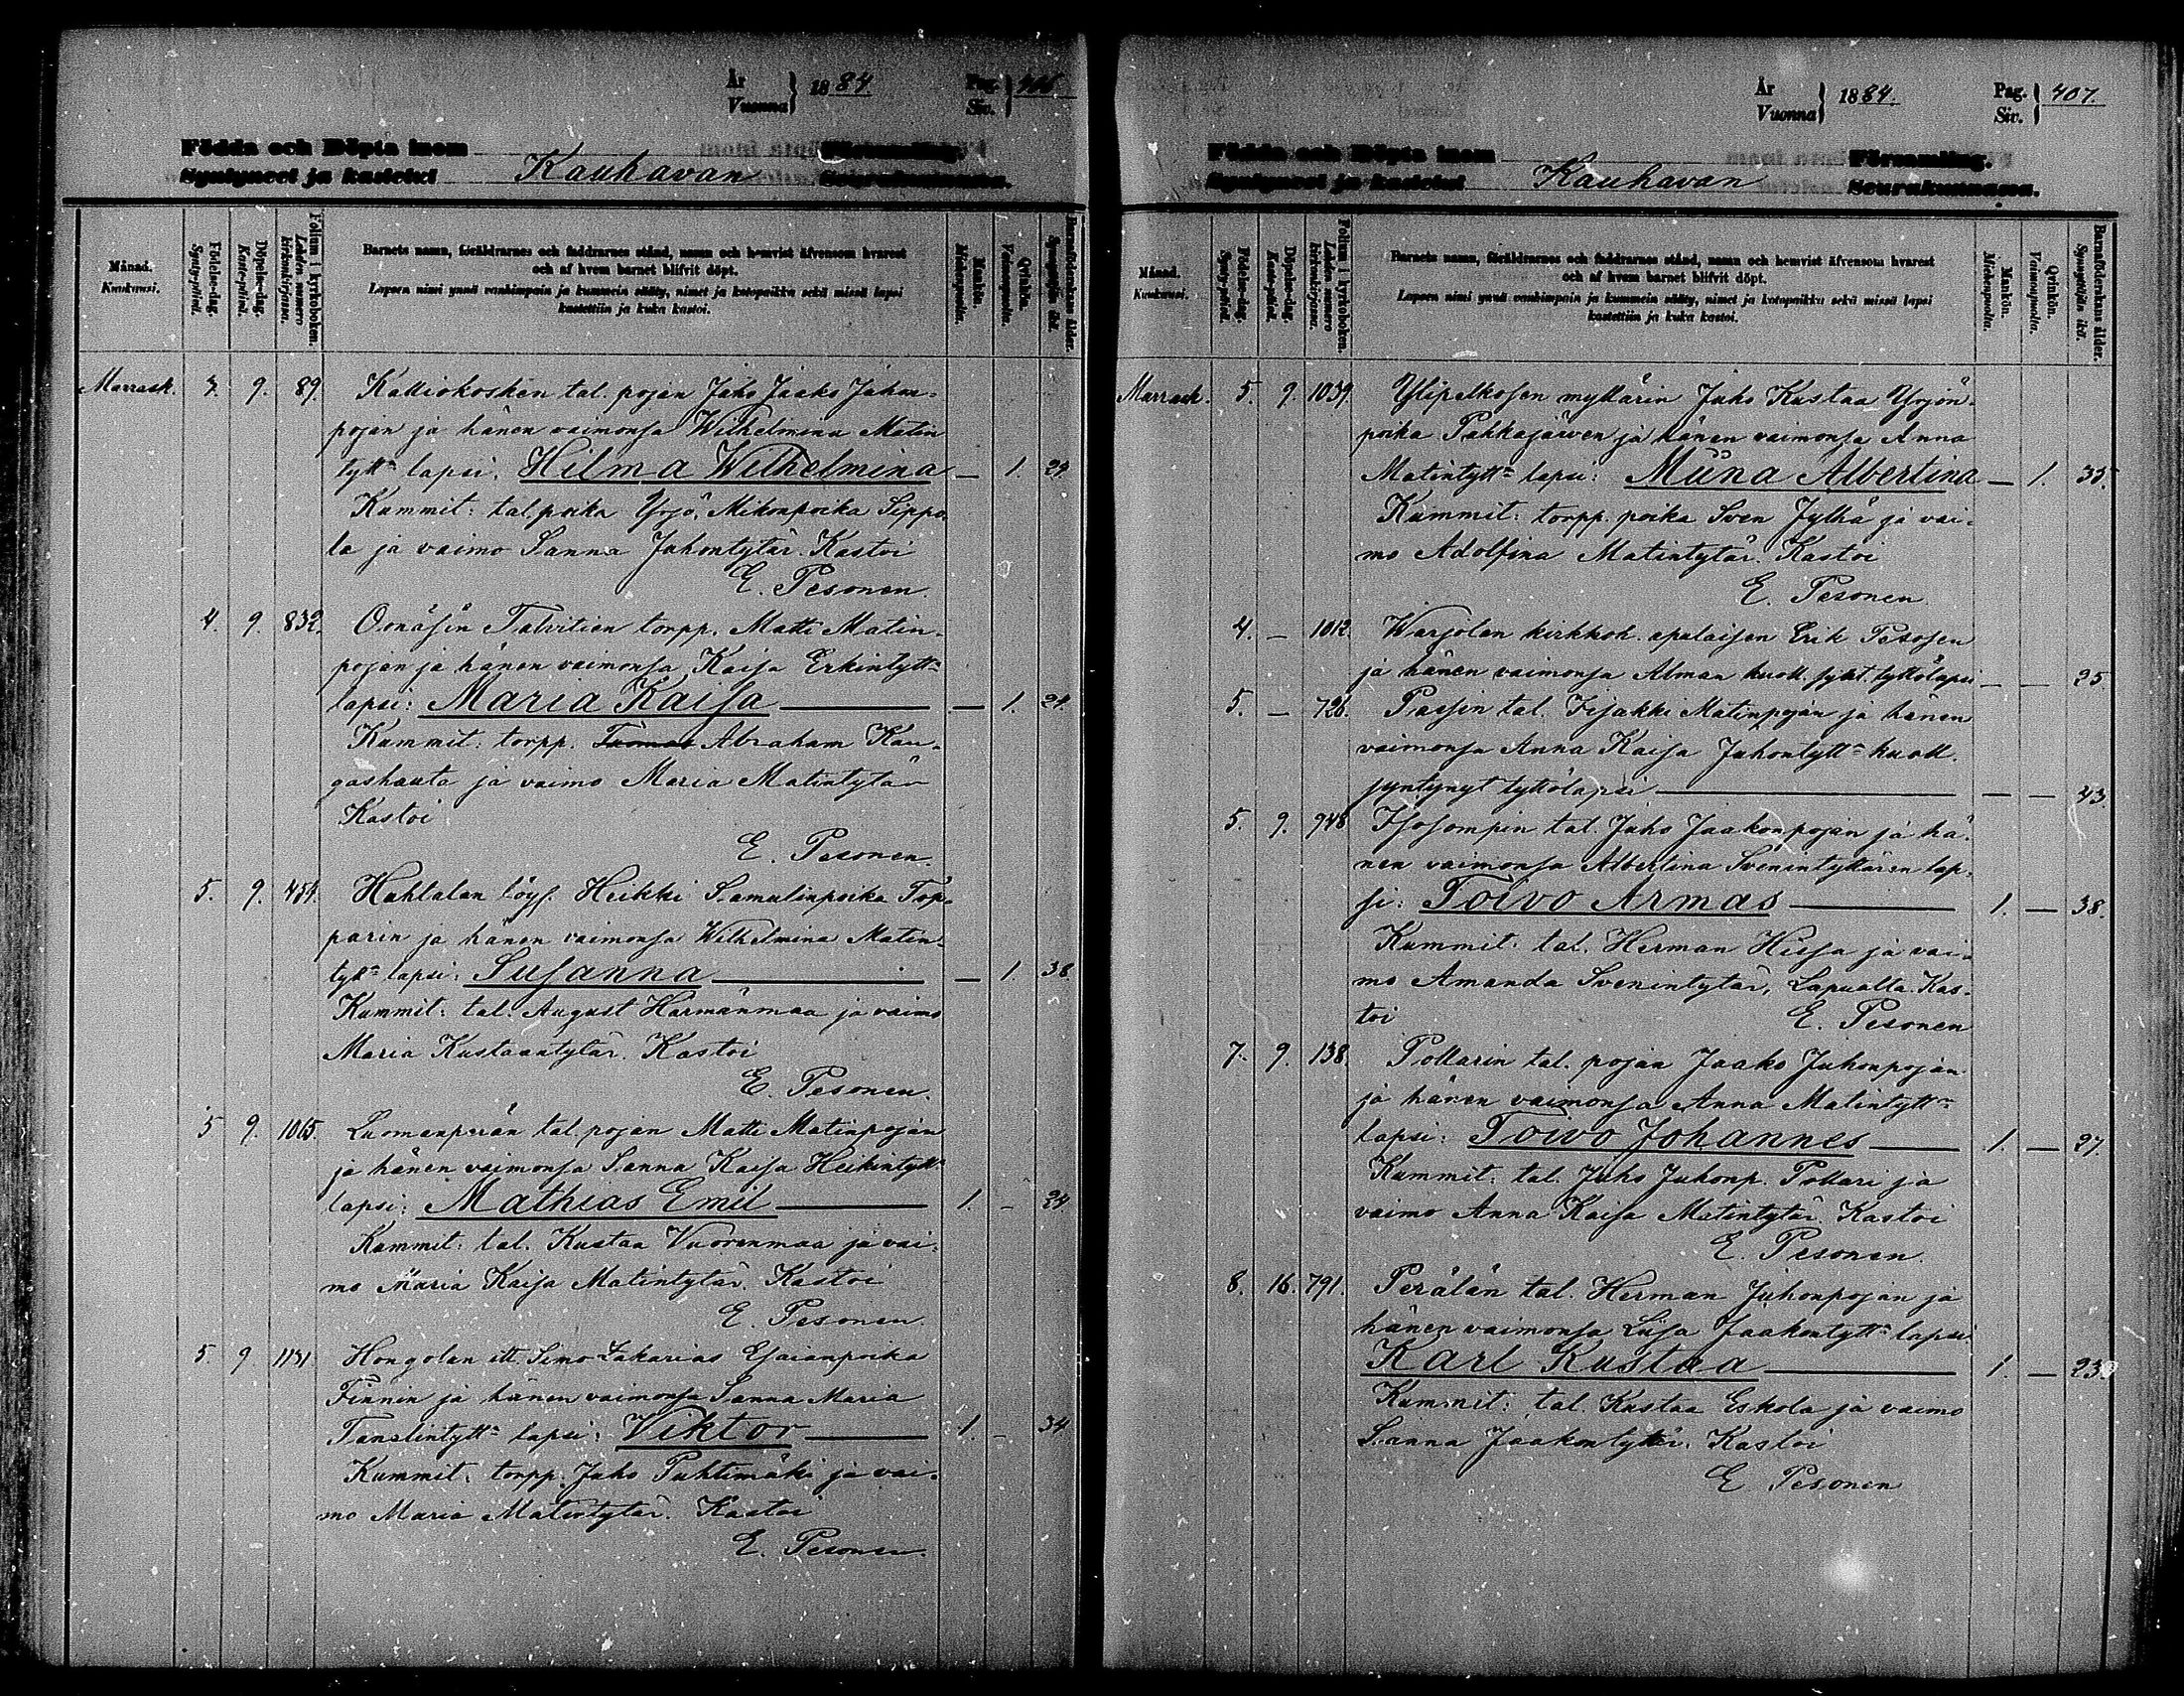 År
Vuonna } 1884.
Pag.
Siv. } 406
Födda och Döpta inom
Syntyneet ja kastetut Kauhavan Församling.
Seurakunnassa.
Månad.
Kuukausi.
Födelse-dag.
Syntymä-päivä.
Döpelse-dag.
Kaste-päivä.
Folium i kyrkoboken.
Lehden numero kirkonkirjassa.
Barnets namn, föräldrarnes och faddrarnes stånd, namn och hemvist äfvensom hvarest
och af hvem barnet blifvit döpt.
Lapsen nimi ynnä vanhimpain ja kummein sääty, nimet ja kotopaikka sekä missä lapsi
kastettiin ja kuka kastoi.
Mankön.
Miehenpuolta.
Qvinkön.
Vaimonpuolta.
Barnaföderskans ålder.
Synnyttäjän ikä.
Marrask. 7. 9. 89. Kalliokosken tal. pojan Juho Jaako Juhon-
pojan ja hänen vaimonsa Wilhelmina Matin
tytt:n lapsi. Hilma Wilhelmina — 1. 24.
Kummit: tal. poika Yrjö Mikonpoika Sippo-
la ja vaimo Sanna Juhontytär. Kastoi
E. Pesonen.
4. 9. 832. Talvitien torpp. Matti Matin-
pojan ja hänen vaimonsa Kaisa Erkintytt:n
lapsi: Maria Kaisa — 1. 24.
Kummit: torpp. Tuomas Abraham Kan-
gashauta ja vaimo Maria Matintytär
Kastoi
E. Pesonen.
5. 9. 454. Huhtalan löys. Heikki Samulinpoika Top-
parin ja hänen vaimonsa Wilhelmina Matin-
tytt:n lapsi: Susanna — 1. 38.
Kummit: tal. August Härmänmaa ja vaimo
Maria Kustaantytär. Kastoi
E. Pesonen.
5 9. 1065. Luomanperän tal. pojan Matti Matinpojan
ja hänen vaimonsa Sanna Kaisa Heikintytt:n
lapsi: Mathias Emil 1. - 24
Kummit: tal. Kustaa Vuorenmaa ja vai-
mo Maria Kaisa Matintytär. Kastoi
E. Pesonen.
5. 9. 1131 Hongolan itt. Simo Zakarias Esaianpoika
Finnin ja hänen vaimonsa Sanna Maria
lapsi: Viktor 1. - 34
Kummit: torpp. Juho Puhtimäki ja vai-
mo Maria Matintytär. Kastoi
E. Pesonen.
År
Vuonna } 1884.
Pag.
Siv. } 407.
Födda och Döpta inom
Syntyneet ja kastetut Kauhavan Församling.
Seurakunnassa.
Månad.
Kuukausi.
Födelse-dag.
Syntymä-päivä.
Döpelse-dag.
Kaste-päivä.
Folium i kyrkoboken.
Lehden numero kirkonkirjassa.
Barnets namn, föräldrarnes och faddrarnes stånd, namn och hemvist äfvensom hvarest
och af hvem barnet blifvit döpt.
Lapsen nimi ynnä vanhimpain ja kummein sääty, nimet ja kotopaikka sekä missä lapsi
kastettiin ja kuka kastoi.
Mankön.
Miehenpuolta.
Qvinkön.
Vaimonpuolta.
Barnaföderskans ålder.
Synnyttäjän ikä.
Marrask. 5. 9. 1039. Ylipelkosen myllärin Juho Kustaa Yrjön-
poika Pakkajärven ja hänen vaimonsa Anna
Matintytt:n lapsi: Miina Albertina — 1. 35.
Kummit: torpp. poika Sven Jylhä ja vai-
mo Adolfina Matintytär. Kastoi
E. Pesonen.
4. — 1012. Warjolan kirkkoh. apulaisen Erik Pesosen
ja hänen vaimonsa Alman kuoll. synt. tyttölapsi — — 25.
5. — 726. Passin tal. Iisakki Matinpojan ja hänen
vaimonsa Anna Kaisa Juhontytt:n kuoll.
syntynyt tyttölapsi — — 43.
5. 9. 948 Isosompin tal. Juho Jaakonpojan ja hä-
nen vaimonsa Albertina Svenintyttären lap-
si: Toivo Armas 1. — 38.
Kummit: tal. Herman Hiisa ja vai-
mo Amanda Svenintytär, Lapualla. Kas-
toi E. Pesonen
7. 9. 138. Pollarin tal. pojan Jaako Juhonpojan
ja hänen vaimonsa Anna Matintytt:n
lapsi: Toivo Johannes 1. — 27.
Kummit: tal. Juho Juhonp. Pollari ja
vaimo Anna Kaisa Matintytär. Kastoi
E. Pesonen.
8. 16. 791. Perälän tal. Herman Juhonpojan ja
hänen vaimonsa Liisa Jaakontytt:n lapsi
Karl Kustaa 1. — 23.
Kummit: tal. Kustaa Eskola ja vaimo
Sanna Jaakontytär. Kastoi
E Pesonen